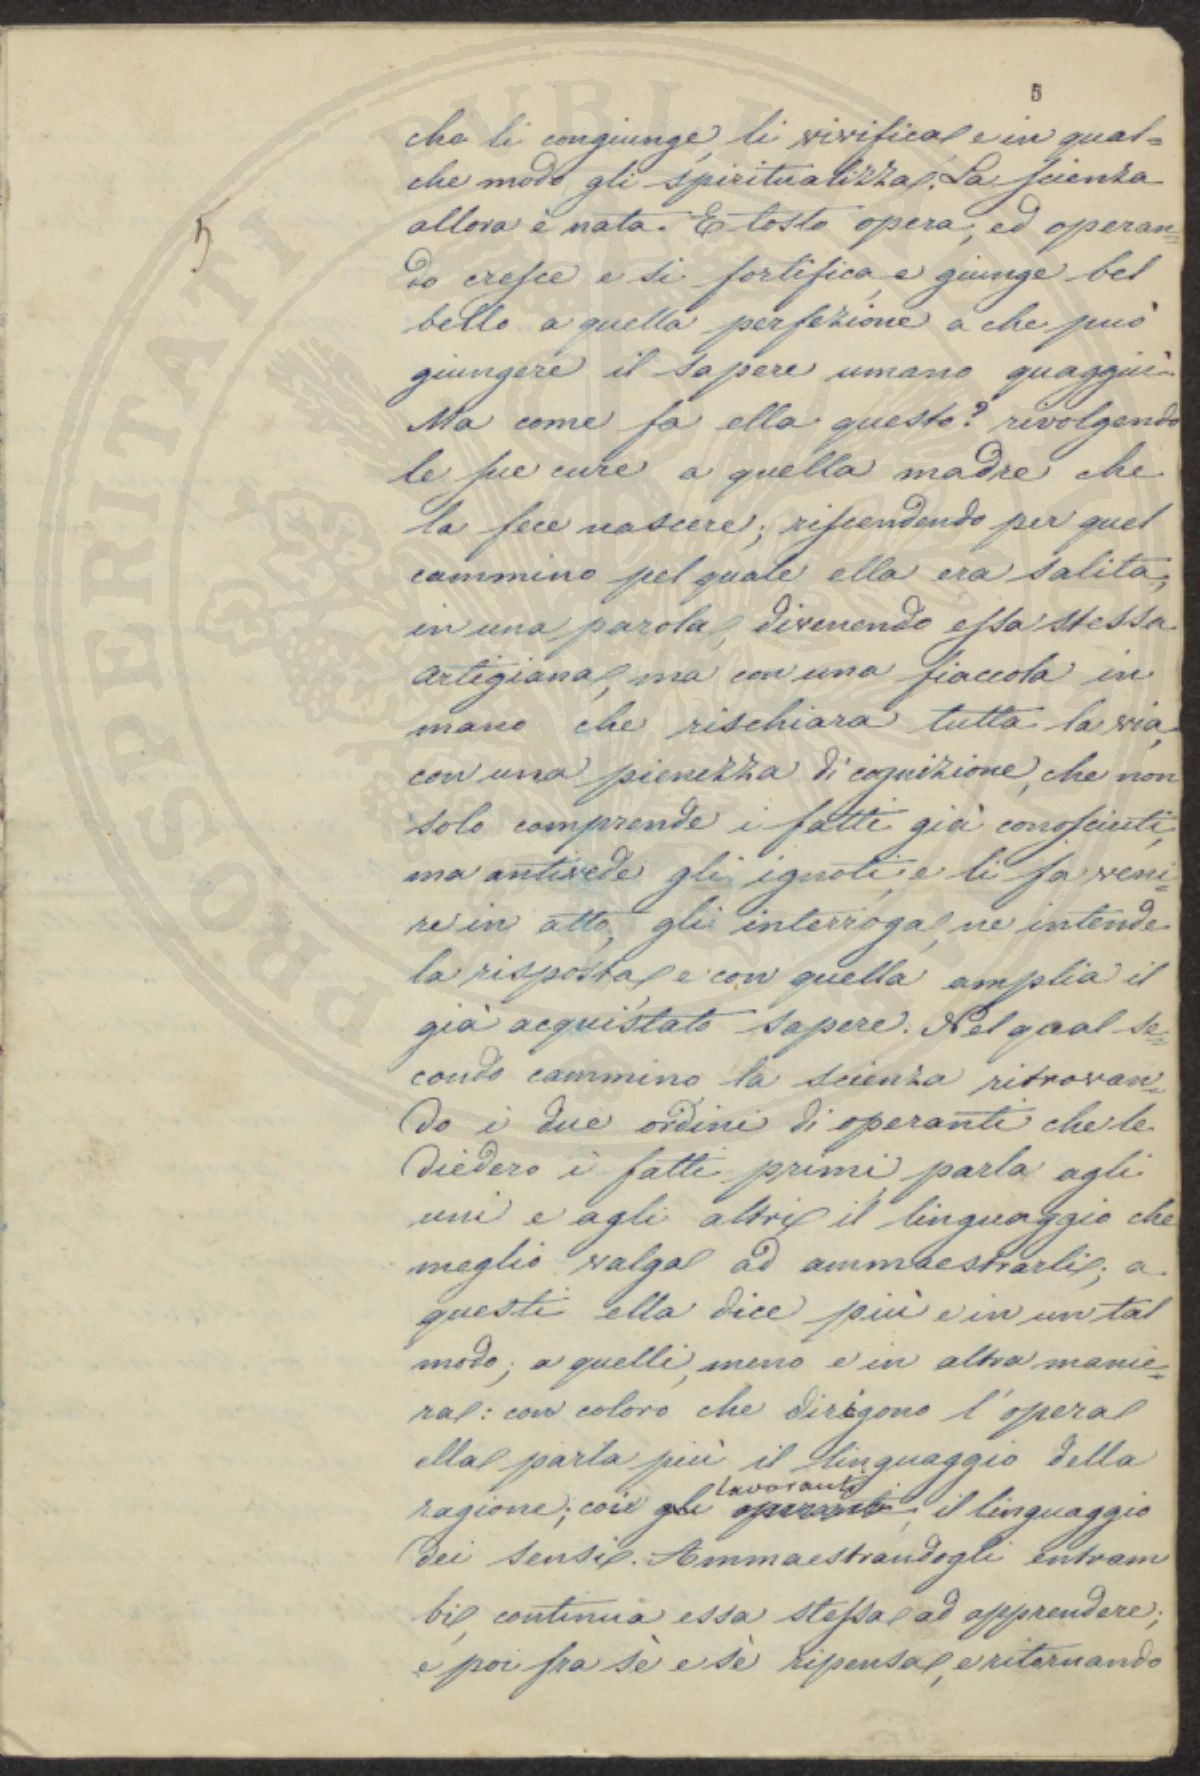 5
5
che li congiunge, li vivifica, e in qual=
che modo gli spiritualizza. La scienza
allora è nata. E tosto opera, ed operan=
do cresce e si fortifica, e giunge bel
bello a quella perfezione a che può
giungere il sapere umano quaggiù.
Ma come fa ella questo? rivolgendo
le sue cure a quella madre che
la fece nascere; riscendendo per quel
cammino pel quale ella era salita;
in una parola, divenendo essa stessa
artigiana, ma con una fiaccola in
mano che rischiara tutta la via,
con una pienezza di cognizione, che non
solo comprende i fatti già conosciuti,
ma antivede gli ignoti, e li fa veni=
re in atto, gli interroga, ne intende
la risposta, e con quella amplia il
già acquistato sapere. Nel qual se=
condo cammino la scienza ritrovan=
do i due ordini di operanti che le
diedero i fatti primi, parla agli
uni e agli altri il linguaggio che
meglio valga ad ammaestrarli; a
questi ella dice più e in un tal
modo; a quelli, meno e in altra manie=
ra: con coloro che dirigono l'opera
ella parla più il linguaggio della
lavoranti
ragione; coi gli operanti, il linguaggio
dei sensi. Ammaestrandogli entram
bi, continua essa stessa ad apprendere;
e poi fra sè e sè ripensa, e ritornando
PROSPERITATI PUBLICAE